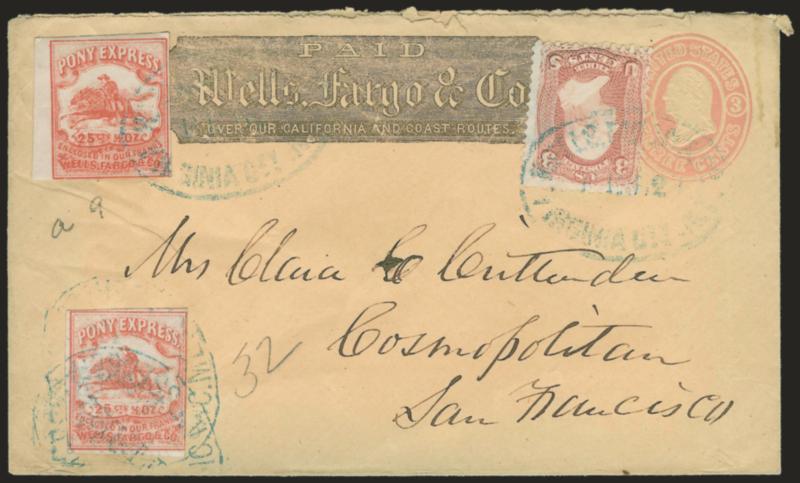 PONY EXPRESS
25 CTS ½ OZ
ENCLOSED IN OUR FRANKS
WELLS, FARGO & CO.
PAID
Wells, Fargo & Co
OVER OUR CALIFORNIA AND COAST ROUTES.
U S
3 3
UNITED STATES
3
THREE CENTS
VIRGINIA CITY
VIRGINIA CITY
a 9
Mrs Clara C Crittenden
Cosmopolitan
San Francisco
32
PONY EXPRESS
25 CTS ½ OZ
ENCLOSED IN OUR FRANKS
WELLS, FARGO & CO.